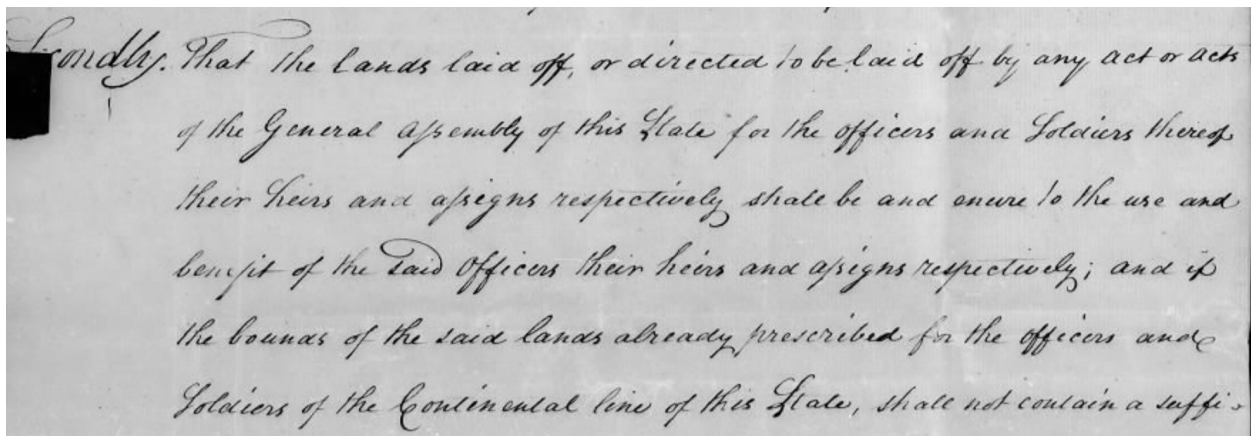 Secondly. That the lands laid off, or directed to be laid off by any act or acts
of the General assembly of this State for the officers and Soldiers thereof
their heirs and assigns respectively shall be and enure to the use and
benefit of the said Officers their heirs and assigns respectively; and if
the bounds of the said lands already prescribed for the officers and
Soldiers of the Continental line of this State, shall not contain a suffi-